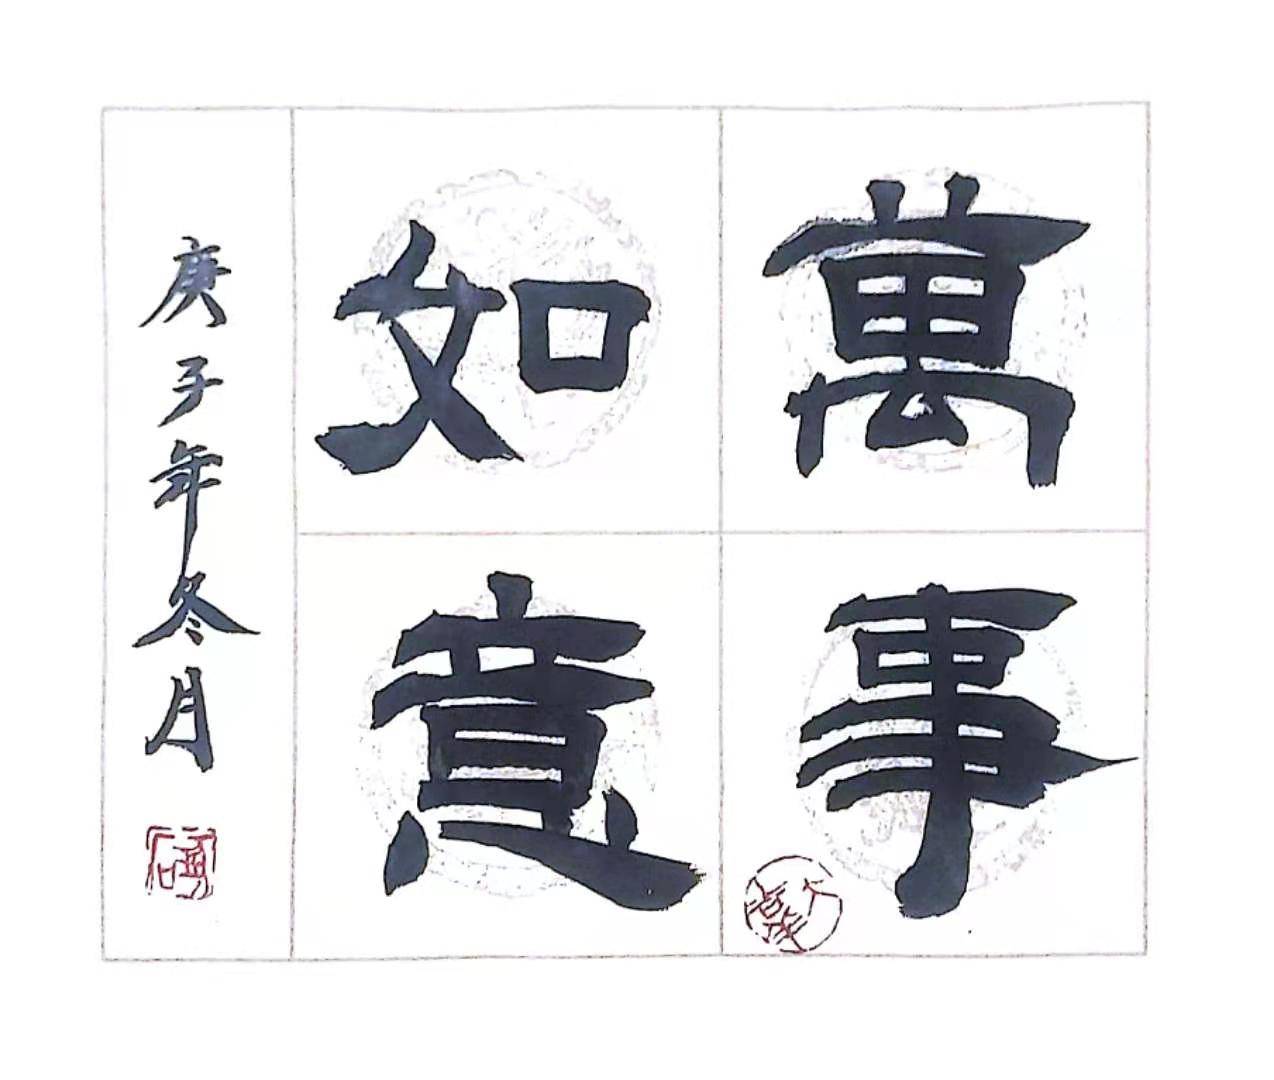 萬事
如意
庚子年冬月